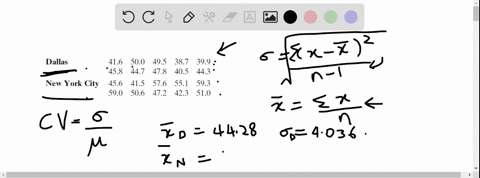 Dallas 41.6 50.0 49.5 38.7 39.9
45.8 44.7 47.8 40.5 44.3
New York City 45.6 41.5 57.6 55.1 59.3
59.0 50.6 47.2 42.3 51.0
σ = √(Σ(x - x̄)² / (n-1))
x̄ = Σx / n
CV = σ / μ
x̄_D = 44.28 σ_D = 4.036.
x̄_N =